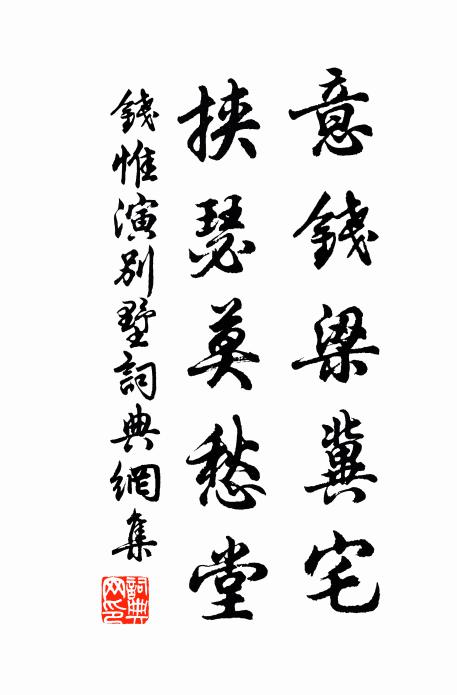 意錢梁冀宅
挾瑟莫愁堂
錢惟演別墅詞典網集
詞典網印